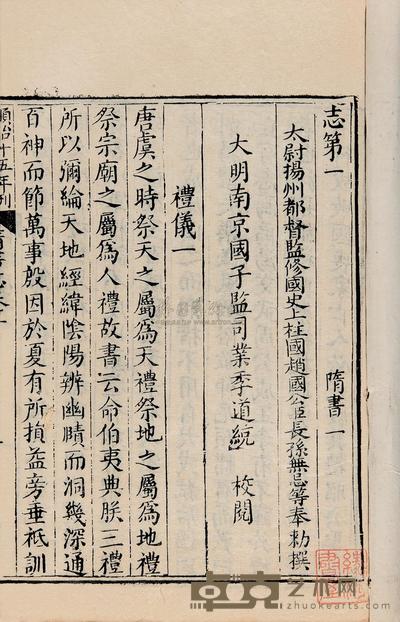 志第一 隋書一
太尉揚州都督監修國史上柱國趙國公臣長孫無忌等奉勑撰
大明南京國子監司業季道統 校閱
禮儀一
唐虞之時祭天之屬爲天禮祭地之屬爲地禮
祭宗廟之屬爲人禮故書云命伯夷典朕三禮
所以彌綸天地經緯陰陽辨幽賾而洞幾深通
百神而節萬事殷因於夏有所損益旁垂祗訓
順治十五年刊
卓克艺术网
zhuokearts.com